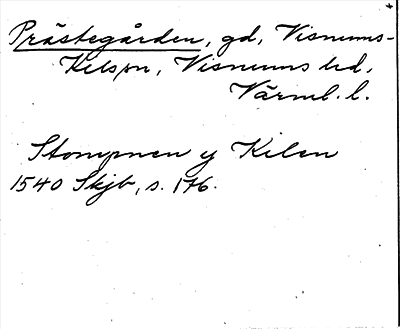 Prästegården, gd, Visnums-
Kils sn, Visnums hd,
Värml. l.
Stompnen y Kilen
1540 Skjb, s. 176.